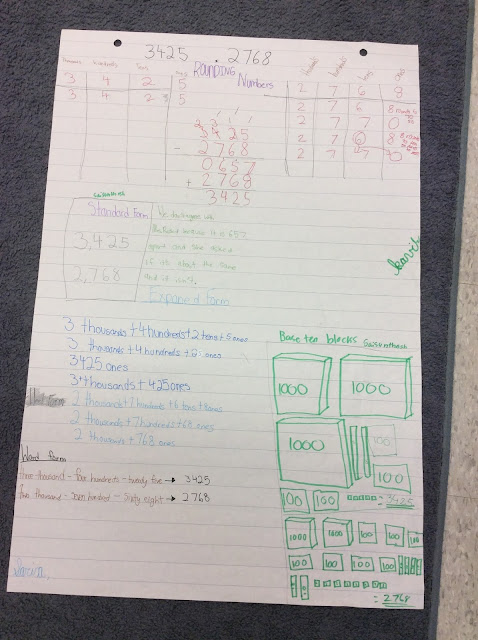 3425 . 2768
ROUNDING
Numbers
thousands hundreds tens ones
3 4 2 5
3 4 2 5
thousands hundreds tens ones
2 7 6 8
2 7 6 8
2 7 7 0
2 7 6 8
2 7 7 0
3425
- 2768
0657
+ 2768
3425
Saisinthosh
Standard Form
3,425
2,768
We disagree with
because it is 657
apart and she asked
if it's about the same
and it isn't.
Expaned Form
3 thousands + 4 hundreds + 2 tens + 5 ones
3 thousands + 4 hundreds + 25 ones
3425 ones
3 thousands + 425 ones
2 thousands + 7 hundreds + 6 tens + 8 ones
2 thousands + 7 hundreds + 68 ones
2 thousands + 768 ones
Word Form
three thousand - four hundreds - twenty five → 3425
two thousand - seven hundred - sixty eight → 2768
Base ten blocks Saisinthosh
1000 1000
1000 100
100
100 100 = 3425
1000 1000 100 100
100 100 100 100 100
= 2768